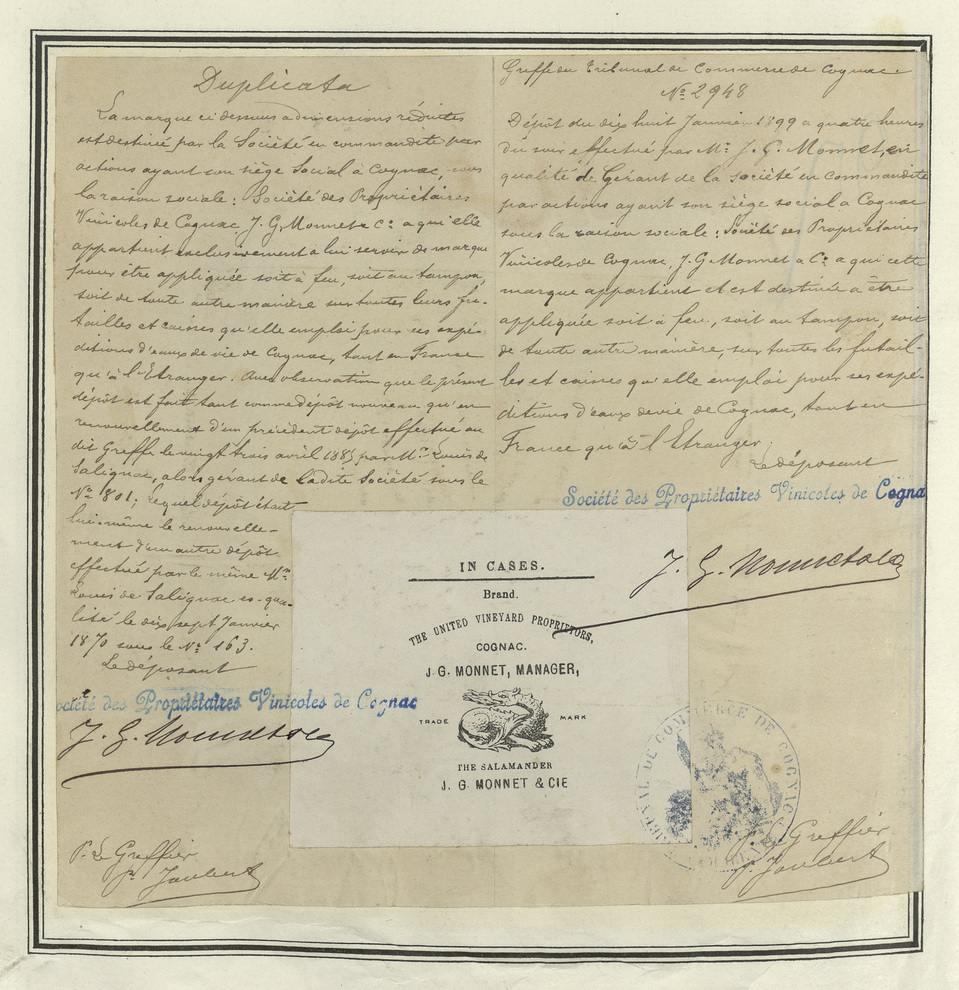 Duplicata
La marque ci dessus a dimensions réduites
est destinée par la Société en commandite par
actions ayant son siège Social à Cognac, sous
la raison sociale : Société des Propriétaires
Vinicoles de Cognac J. G. Monnet & Cº a qu'elle
appartient exclusivement à lui servir de marque
pour être appliquée soit à feu, soit au tampon,
soit de toute autre manière sur toutes leurs fu-
tailles et caisses qu'elle emploi pour ses expé-
ditions d'eaux de vie de Cognac, tant en France
qu'à l'Etranger. Avec observation que le présent
dépôt est fait tant comme dépôt nouveau qu'en
renouvellement d'un précédent dépôt effectué au
dit Greffe le vingt trois avril 1885 par Mr. Louis de
Salignac, alors gérant de ladite Société sous le
Nº 1801; lequel dépôt était
lui-même le renouvelle-
ment d'un autre dépôt
effectué par le même Mr.
Louis de Salignac es-qua-
lité le dix sept Janvier
1870 sous le Nº 163.
Le déposant
ociété des Propriétaires Vinicoles de Cognac
J. G. Monnet & Co
P. Le Greffier
Joubert
Greffe du Tribunal de Commerce de Cognac
Nº 2948
Dépôt du dix huit Janvier 1899 a quatre heures
du soir effectué par Mr. J. G. Monnet, en
qualité de Gérant de la Société en commandite
par actions ayant son siège social a Cognac
sous la raison sociale : Société des Propriétaires
Vinicoles de Cognac, J. G. Monnet & Cº a qui cette
marque appartient et est destinée à être
appliquée soit à feu, soit au tampon, soit
de toute autre manière, sur toutes les futail-
les et caisses qu'elle emploi pour ses expé-
ditions d'eaux de vie de Cognac, tant en
France qu'à l'Etranger.
Le déposant
Société des Propriétaires Vinicoles de Cogna
J. G. Monnet & Co
IN CASES.
Brand.
THE UNITED VINEYARD PROPRIETORS,
COGNAC.
J. G. MONNET, MANAGER,
TRADE MARK
THE SALAMANDER
J. G. MONNET & CIE
DE COMMERCE DE COGNAC
Greffier
Joubert